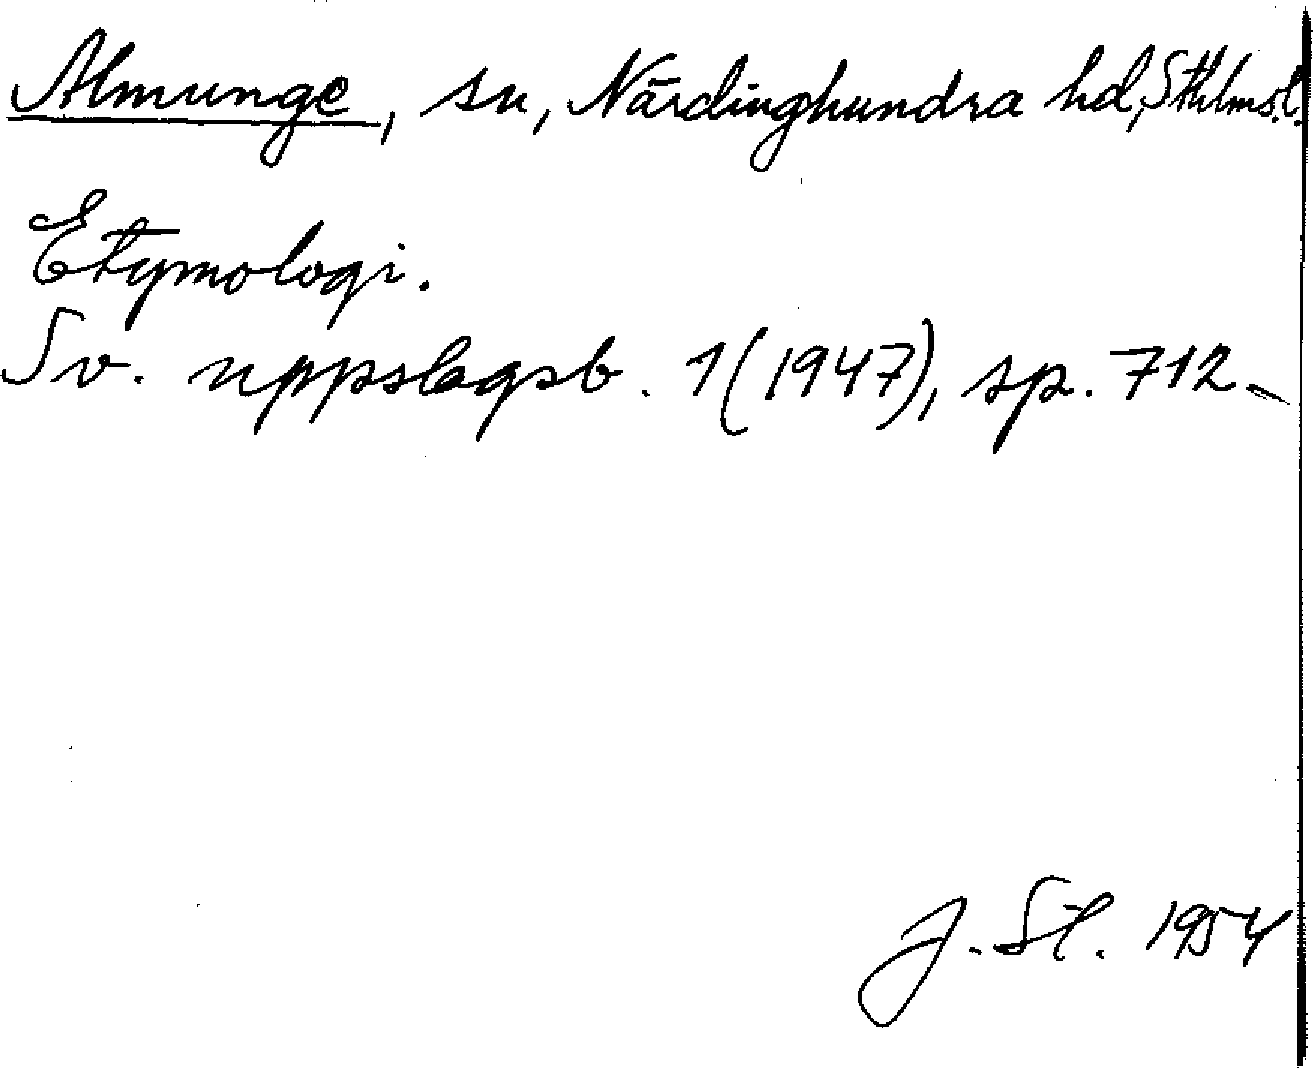 Almunge, sn, Närdinghundra hd, Sthlms l.
Etymologi.
Sv. uppslagsb. 1 (1947), sp. 712.
J. St. 1954